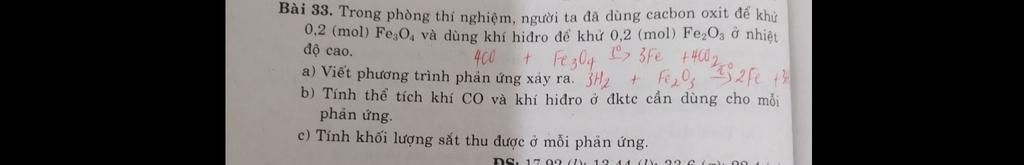 Bài 33. Trong phòng thí nghiệm, người ta đã dùng cacbon oxit để khử
0,2 (mol) Fe₃O₄ và dùng khí hiđro để khử 0,2 (mol) Fe₂O₃ ở nhiệt
độ cao.
4CO + Fe₃O₄ t⁰→ 3Fe + 4CO₂
a) Viết phương trình phản ứng xảy ra. 3H₂ + Fe₂O₃ t⁰→ 2Fe +
b) Tính thể tích khí CO và khí hiđro ở đktc cần dùng cho mỗi
phản ứng.
c) Tính khối lượng sắt thu được ở mỗi phản ứng.